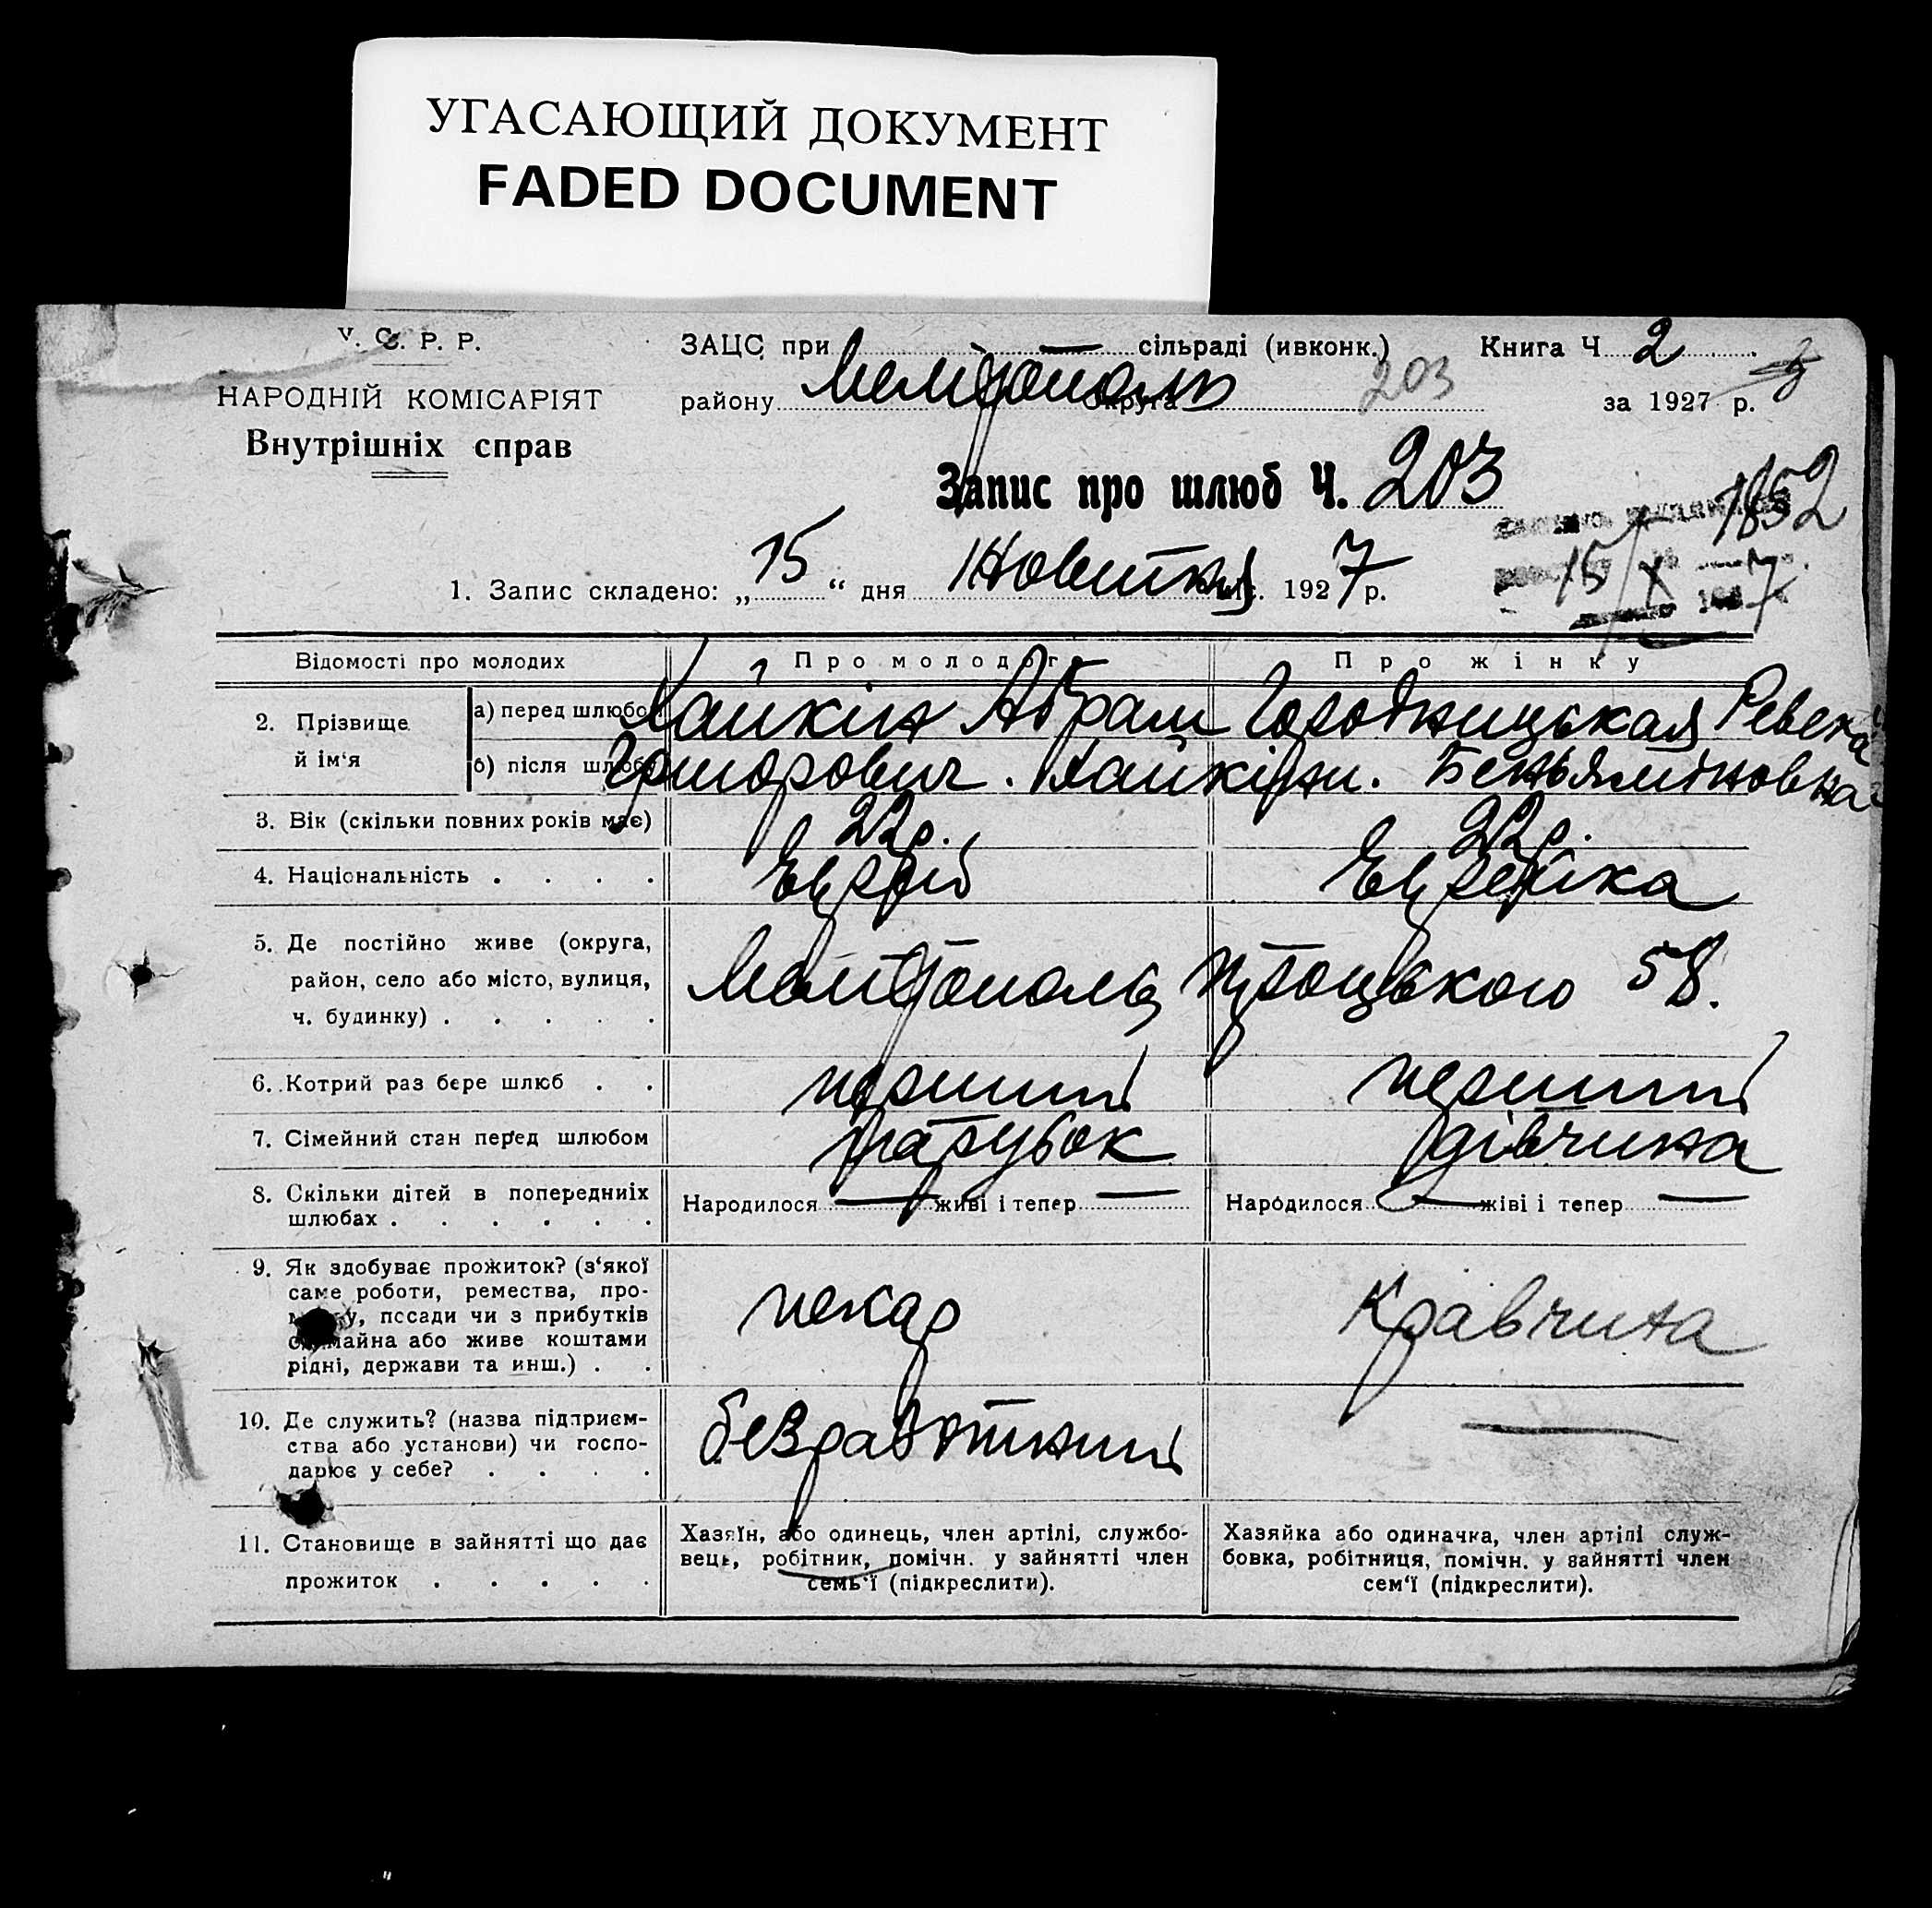 УГАСАЮЩИЙ ДОКУМЕНТ
FADED DOCUMENT
У. С. Р. Р.
НАРОДНІЙ КОМІСАРІЯТ
Внутрішніх справ
ЗАЦС при — сільраді (ивконк.)
Книга Ч. 2
району Мелітополь округа 203
за 1927 р.
Запис про шлюб Ч. 203
1852
15/X 7
1. Запис складено: „ 15 “ дня Жовтня міс. 1927 р.
Відомості про молодих
Про молодого
Про жінку
2. Прізвище й ім‘я
а) перед шлюбом
Хайкін Абрам
Городницькая Ревека
б) після шлюбу
Григорович. Хайкіни. Беньяміновна
3. Вік (скільки повних років має)
22 р.
22 р.
4. Національність . . . .
Еврей
Еврейка
5. Де постійно живе (округа,
район, село або місто, вулиця,
ч. будинку) . . . . .
Мелітополь Троцького 58.
6. Котрий раз бере шлюб . .
перший
перший
7. Сімейний стан перед шлюбом
парубок
дівчина
8. Скільки дітей в попередниіх
шлюбах . . . . . .
Народилося — живі і тепер —
Народилося — жіві і тепер —
9. Як здобуває прожиток? (з‘якої
саме роботи, ремества, про-
у, посади чи з прибутків
майна або живе коштами
рідні, держави та инш.) . .
пекар
Кравчиха
10. Де служить? (назва підприєм-
ства або установи) чи госпо-
дарює у себе? . . . .
безработний
—
11. Становище в зайнятті що дає
прожиток . . . . .
Хазяїн, або одинець, член артілі, службо-
вець, робітник, помічн. у зайнятті член
семь‘ї (підкреслити).
Хазяйка або одиначка, член артілі служ-
бовка, робітниця, помічн. у зайнятті член
сем‘ї (підкреслити).